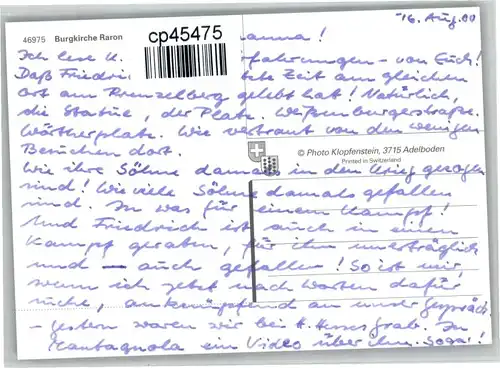 46975 Burgkirche Raron
cp45475
16. Aug. 00
anna!
Ich lese u. fahrungen - von Euch!
Daß Friedri te Zeit am gleichen
Ort am Prenzelberg gelebt hat! Natürlich,
die Statue, der Platz. Weißenburgerstraße.
Wörtherplatz. Wie vertraut von den wenigen
Besuchen dort.
© Photo Klopfenstein, 3715 Adelboden
Printed in Switzerland
Wie ihre Söhne damals in den Krieg gezogen
sind! Wie viele Söhne damals gefallen
sind. In was für einem Kampf!
Und Friedrich ist auch in einen
Kampf geraten, für ihn unerträglich
und - auch gefallen! So ist mir,
wenn ich jetzt nach Worten dafür
suche, anknüpfend an unser Gespräch
- gestern waren wir bei H. Hesses Grab. In
Montagnola ein Video über ihn. Sogar!